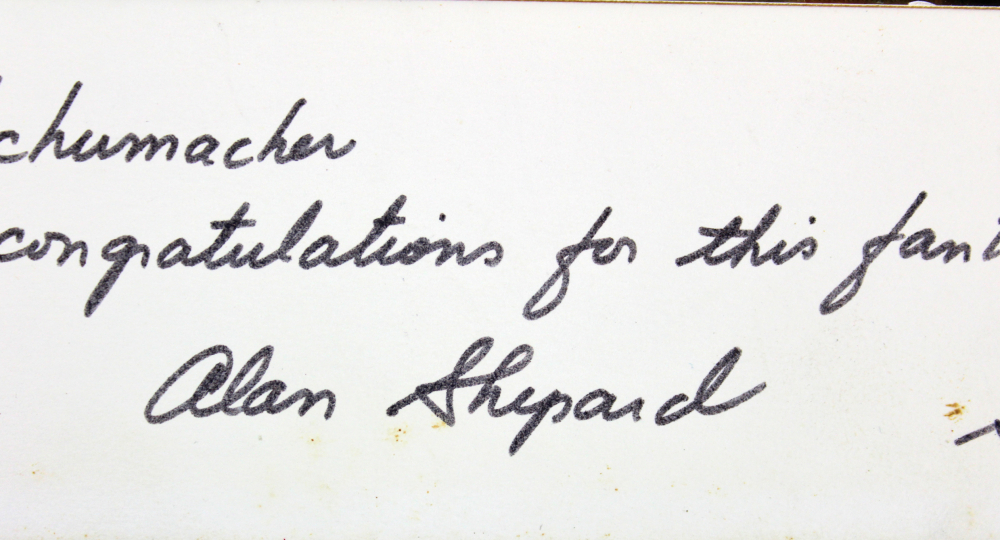 chumacher
congratulations for this fant
Alan Shepard